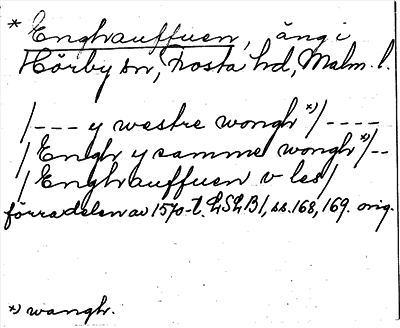 * Enghauffuen, äng i
Hörby sn, Frosta hd, Malm. l.
/--- y westre wongh *)/----
/Engh y samme wongh *)/--
/Enghauffuen v les/
förra delen av 1570-t. LSLB 1, ss. 168, 169. orig.
*) wangh.